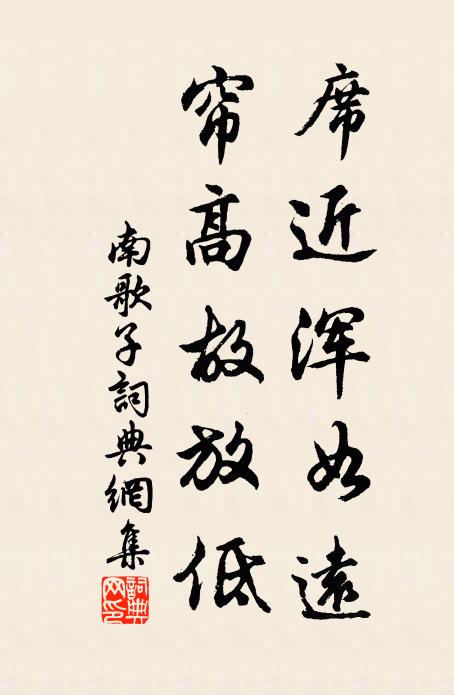 席近浑如遠
帘高故放低
南歌子詞典網集
詞典網印